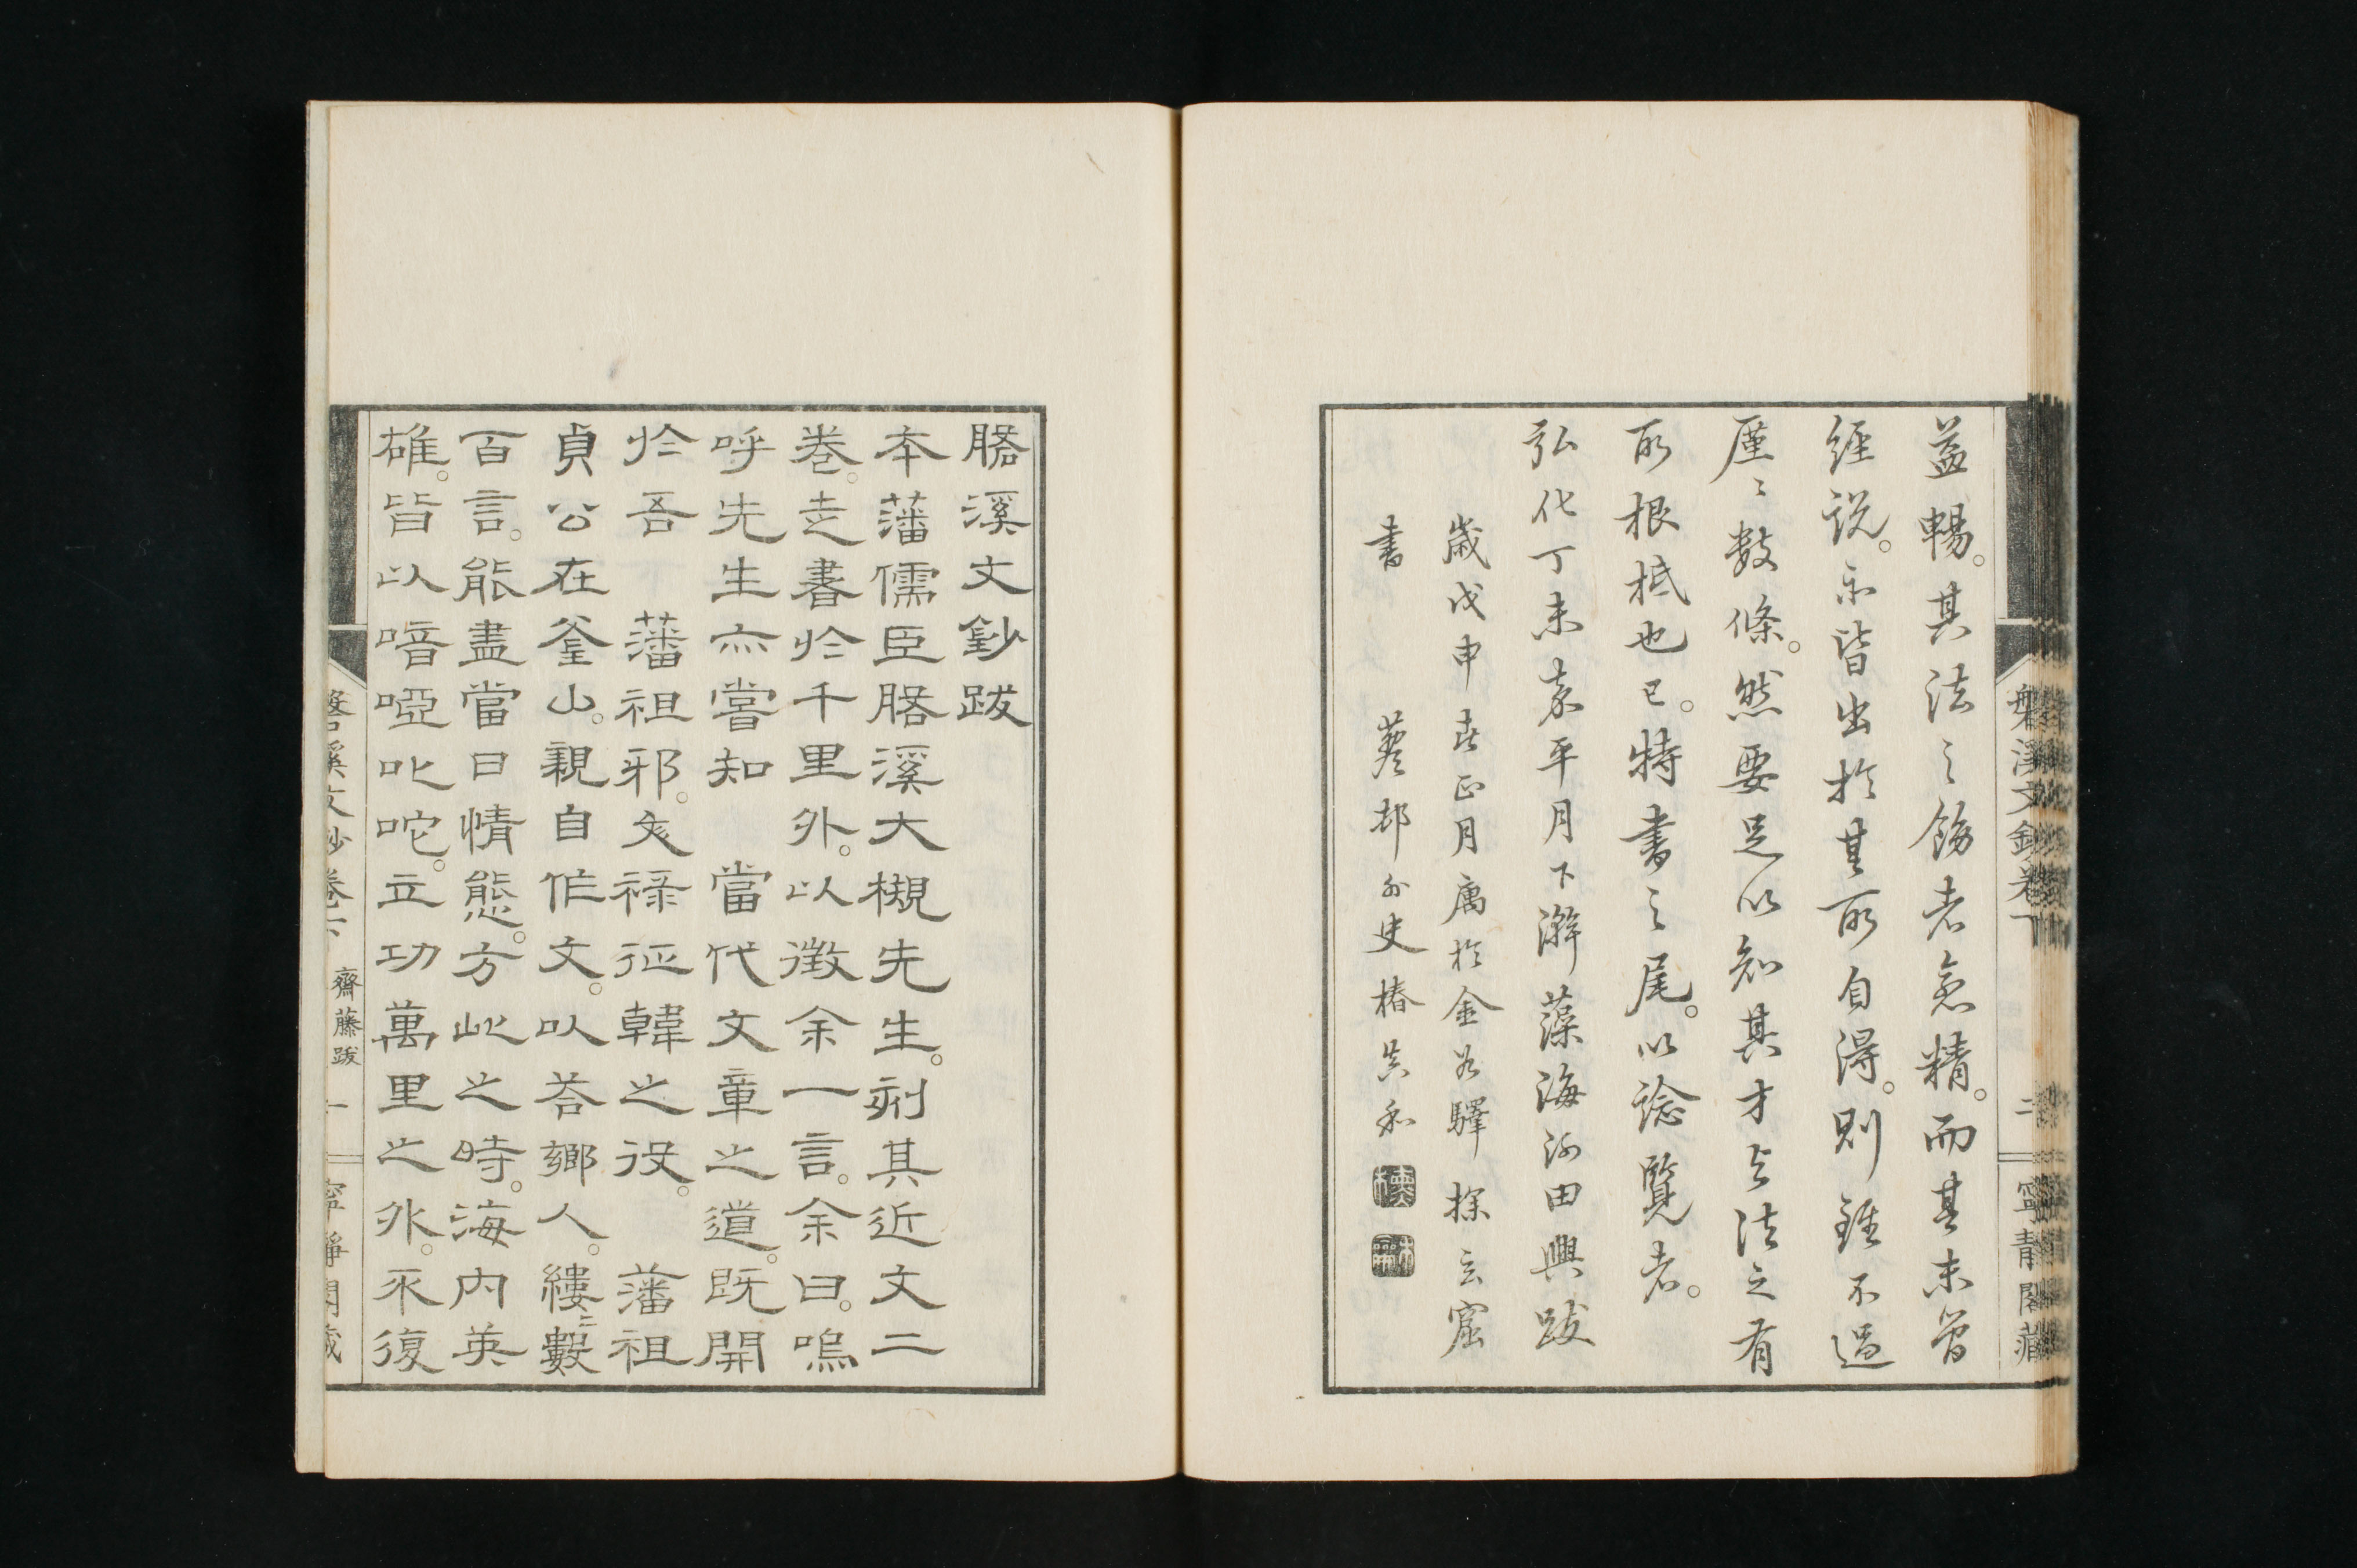 益暢。其法之飭者愈精。而其未曾
經說。亦皆出於其所自得。則雖不過
厪〻數條。然要足以知其才與法之有
所根柢也已。特書之尾。以諗覽者。
弘化丁未嘉平月下澣藻海河田興跋
歲戊申春正月寓於金谷驛探玄窟
書　　蔆邨外史椿真和
磐溪文鈔卷下
二
寧靜閣藏
磐溪文鈔跋
本藩儒臣磐溪大槻先生。刻其近文二
卷。走書於千里外。以徵余一言。余曰。嗚
呼先生亦嘗知　當代文章之道。既開
於吾　藩祖邪。文祿征韓之役。　藩祖
貞公在釜山。親自作文。以荅鄉人。縷〻數
百言。能盡當日情態。方此之時。海內英
雄。皆以喑啞叱咤。立功萬里之外。不復
磐溪文鈔卷下　齋藤跋　一
寧靜閣藏